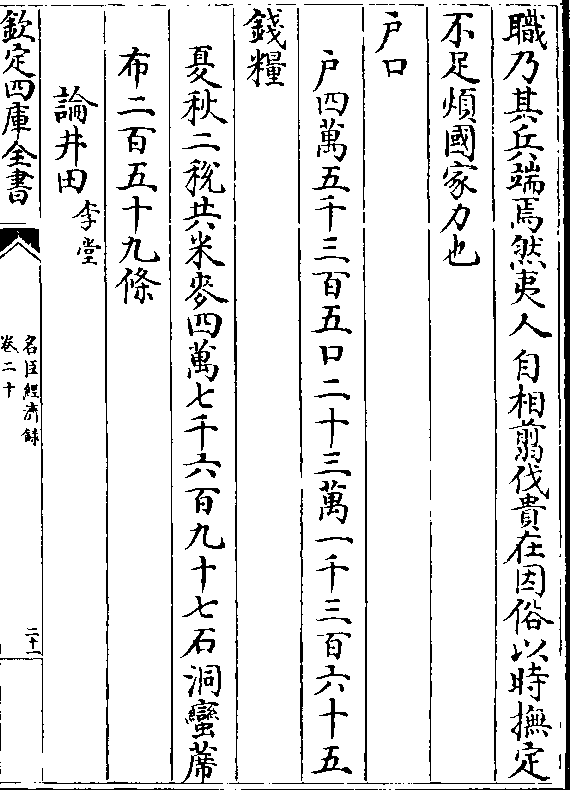 職乃其兵端焉然夷人自相翦伐貴在因俗以時撫定
不足煩國家力也
戸口
戸四萬五千三百五口二十三萬一千三百六十五
錢糧
夏秋二稅共米麥四萬七千六百九十七石洞蠻蓆
布二百五十九條
論井田 李堂
欽定四庫全書
名臣經濟錄
卷二十
二十一